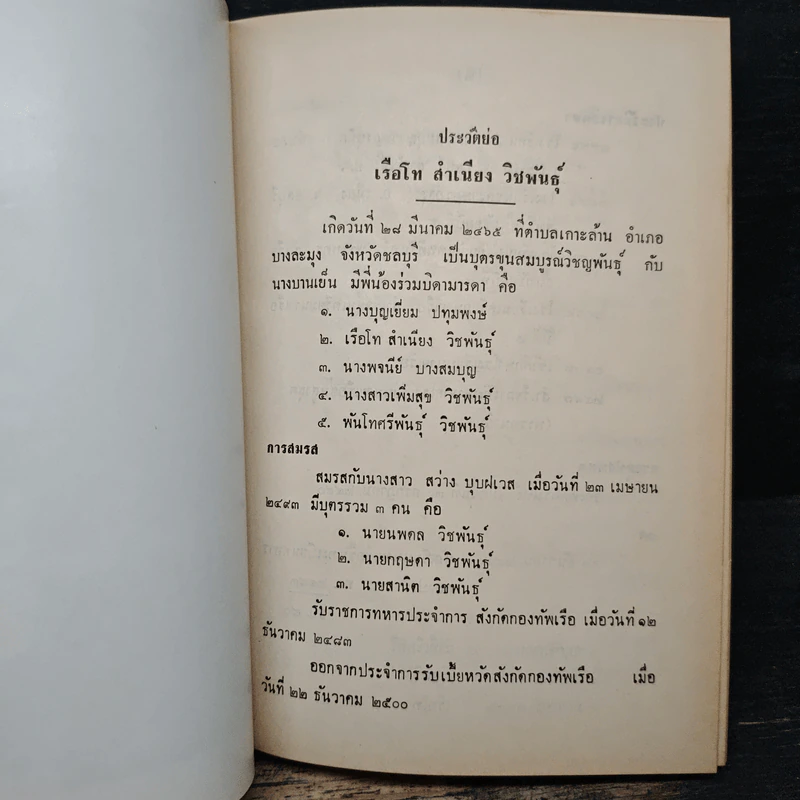 ประวัติย่อ
เรือโท สำเนียง วิชพันธุ์
เกิดวันที่ ๒๘ มีนาคม ๒๔๖๕ ที่ตำบลเกาะล้าน อำเภอ
บางละมุง จังหวัดชลบุรี เป็นบุตรขุนสมบูรณ์วิชญพันธุ์ กับ
นางบานเย็น มีพี่น้องร่วมบิดามารดา คือ
๑. นางบุญเยี่ยม ปทุมพงษ์
๒. เรือโท สำเนียง วิชพันธุ์
๓. นางพจนีย์ บางสมบุญ
๔. นางสาวเพิ่มสุข วิชพันธุ์
๕. พันโทศรีพันธุ์ วิชพันธุ์
การสมรส
สมรสกับนางสาว สว่าง บุบฝเวส เมื่อวันที่ ๒๓ เมษายน
๒๔๙๓ มีบุตรรวม ๓ คน คือ
๑. นายนพดล วิชพันธุ์
๒. นายกฤษดา วิชพันธุ์
๓. นายสานิต วิชพันธุ์
รับราชการทหารประจำการ สังกัดกองทัพเรือ เมื่อวันที่ ๑๒
ธันวาคม ๒๔๘๓
ออกจากประจำการรับเบี้ยหวัดสังกัดกองทัพเรือ เมื่อ
วันที่ ๒๒ ธันวาคม ๒๕๐๐